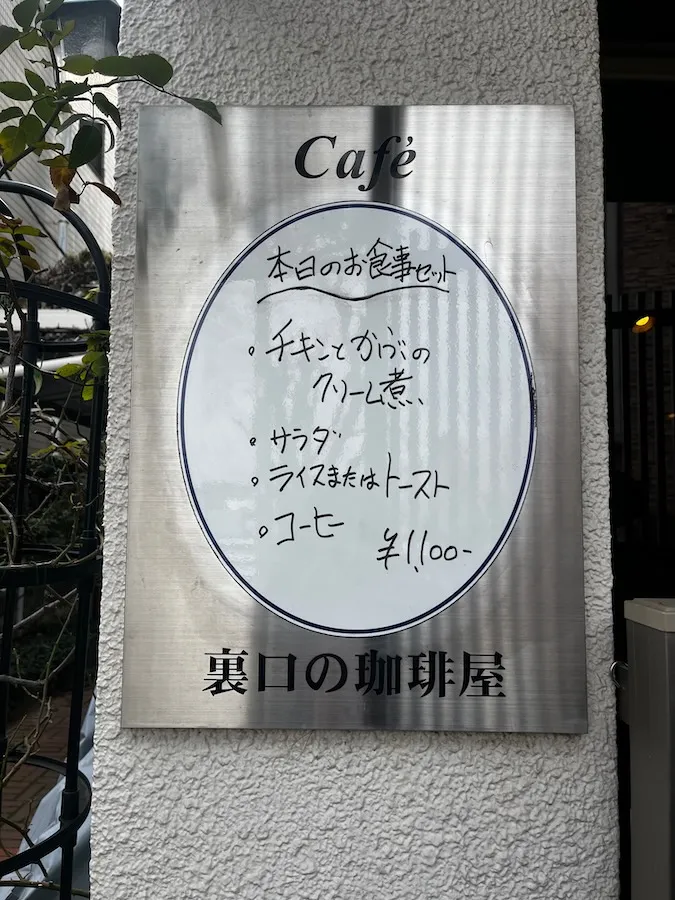 Café
本日のお食事セット
。チキンとかぶの
クリーム煮、
。サラダ
。ライスまたはトースト
。コーヒー
¥1,100-
裏口の珈琲屋